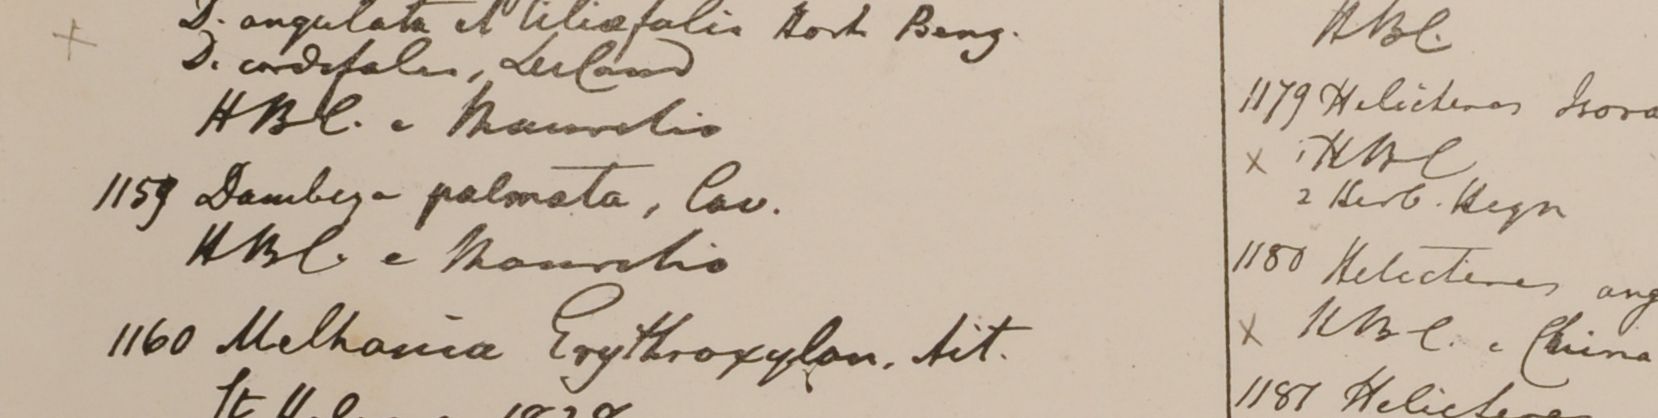 D. angulata et tiliaefolia Hort Beng.
D. cordifolia, Leland
HBC. e Mauritio
1159 Dombeya palmata, Cav.
HBC. e Mauritio
1160 Melhania Erythroxylon. Ait.
St Helena 1828
HBC.
1179 Helicteres Isora
1 HBC
2 Herb. Heyn
1180 Helicteres ang
HBC. e China
1181 Helicteres